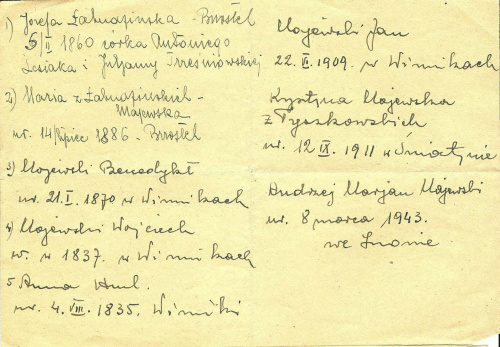 1) Józefa Łahudzińska - Birsztel
5/II 1860 córka Antoniego
Lesiaka i Julyanny
2) Maria z
Majewska
ur. 14/lipiec 1886 - Birsztel
3) Majewski Benedykt
ur. 21. I. 1870 w Winnikach
4) Majewski Wojciech
w 1837. w Winnikach
5 Anna
ur. 4. VIII. 1835. Winniki
Majewski Jan
1909. w Winnikach
Krystyna Majewska
z Tyszkowskich
ur. 12 IX. 1911 w Śniatynie
Andrzej Marjan Majewski
ur. 8 marca 1943.
we Lwowie